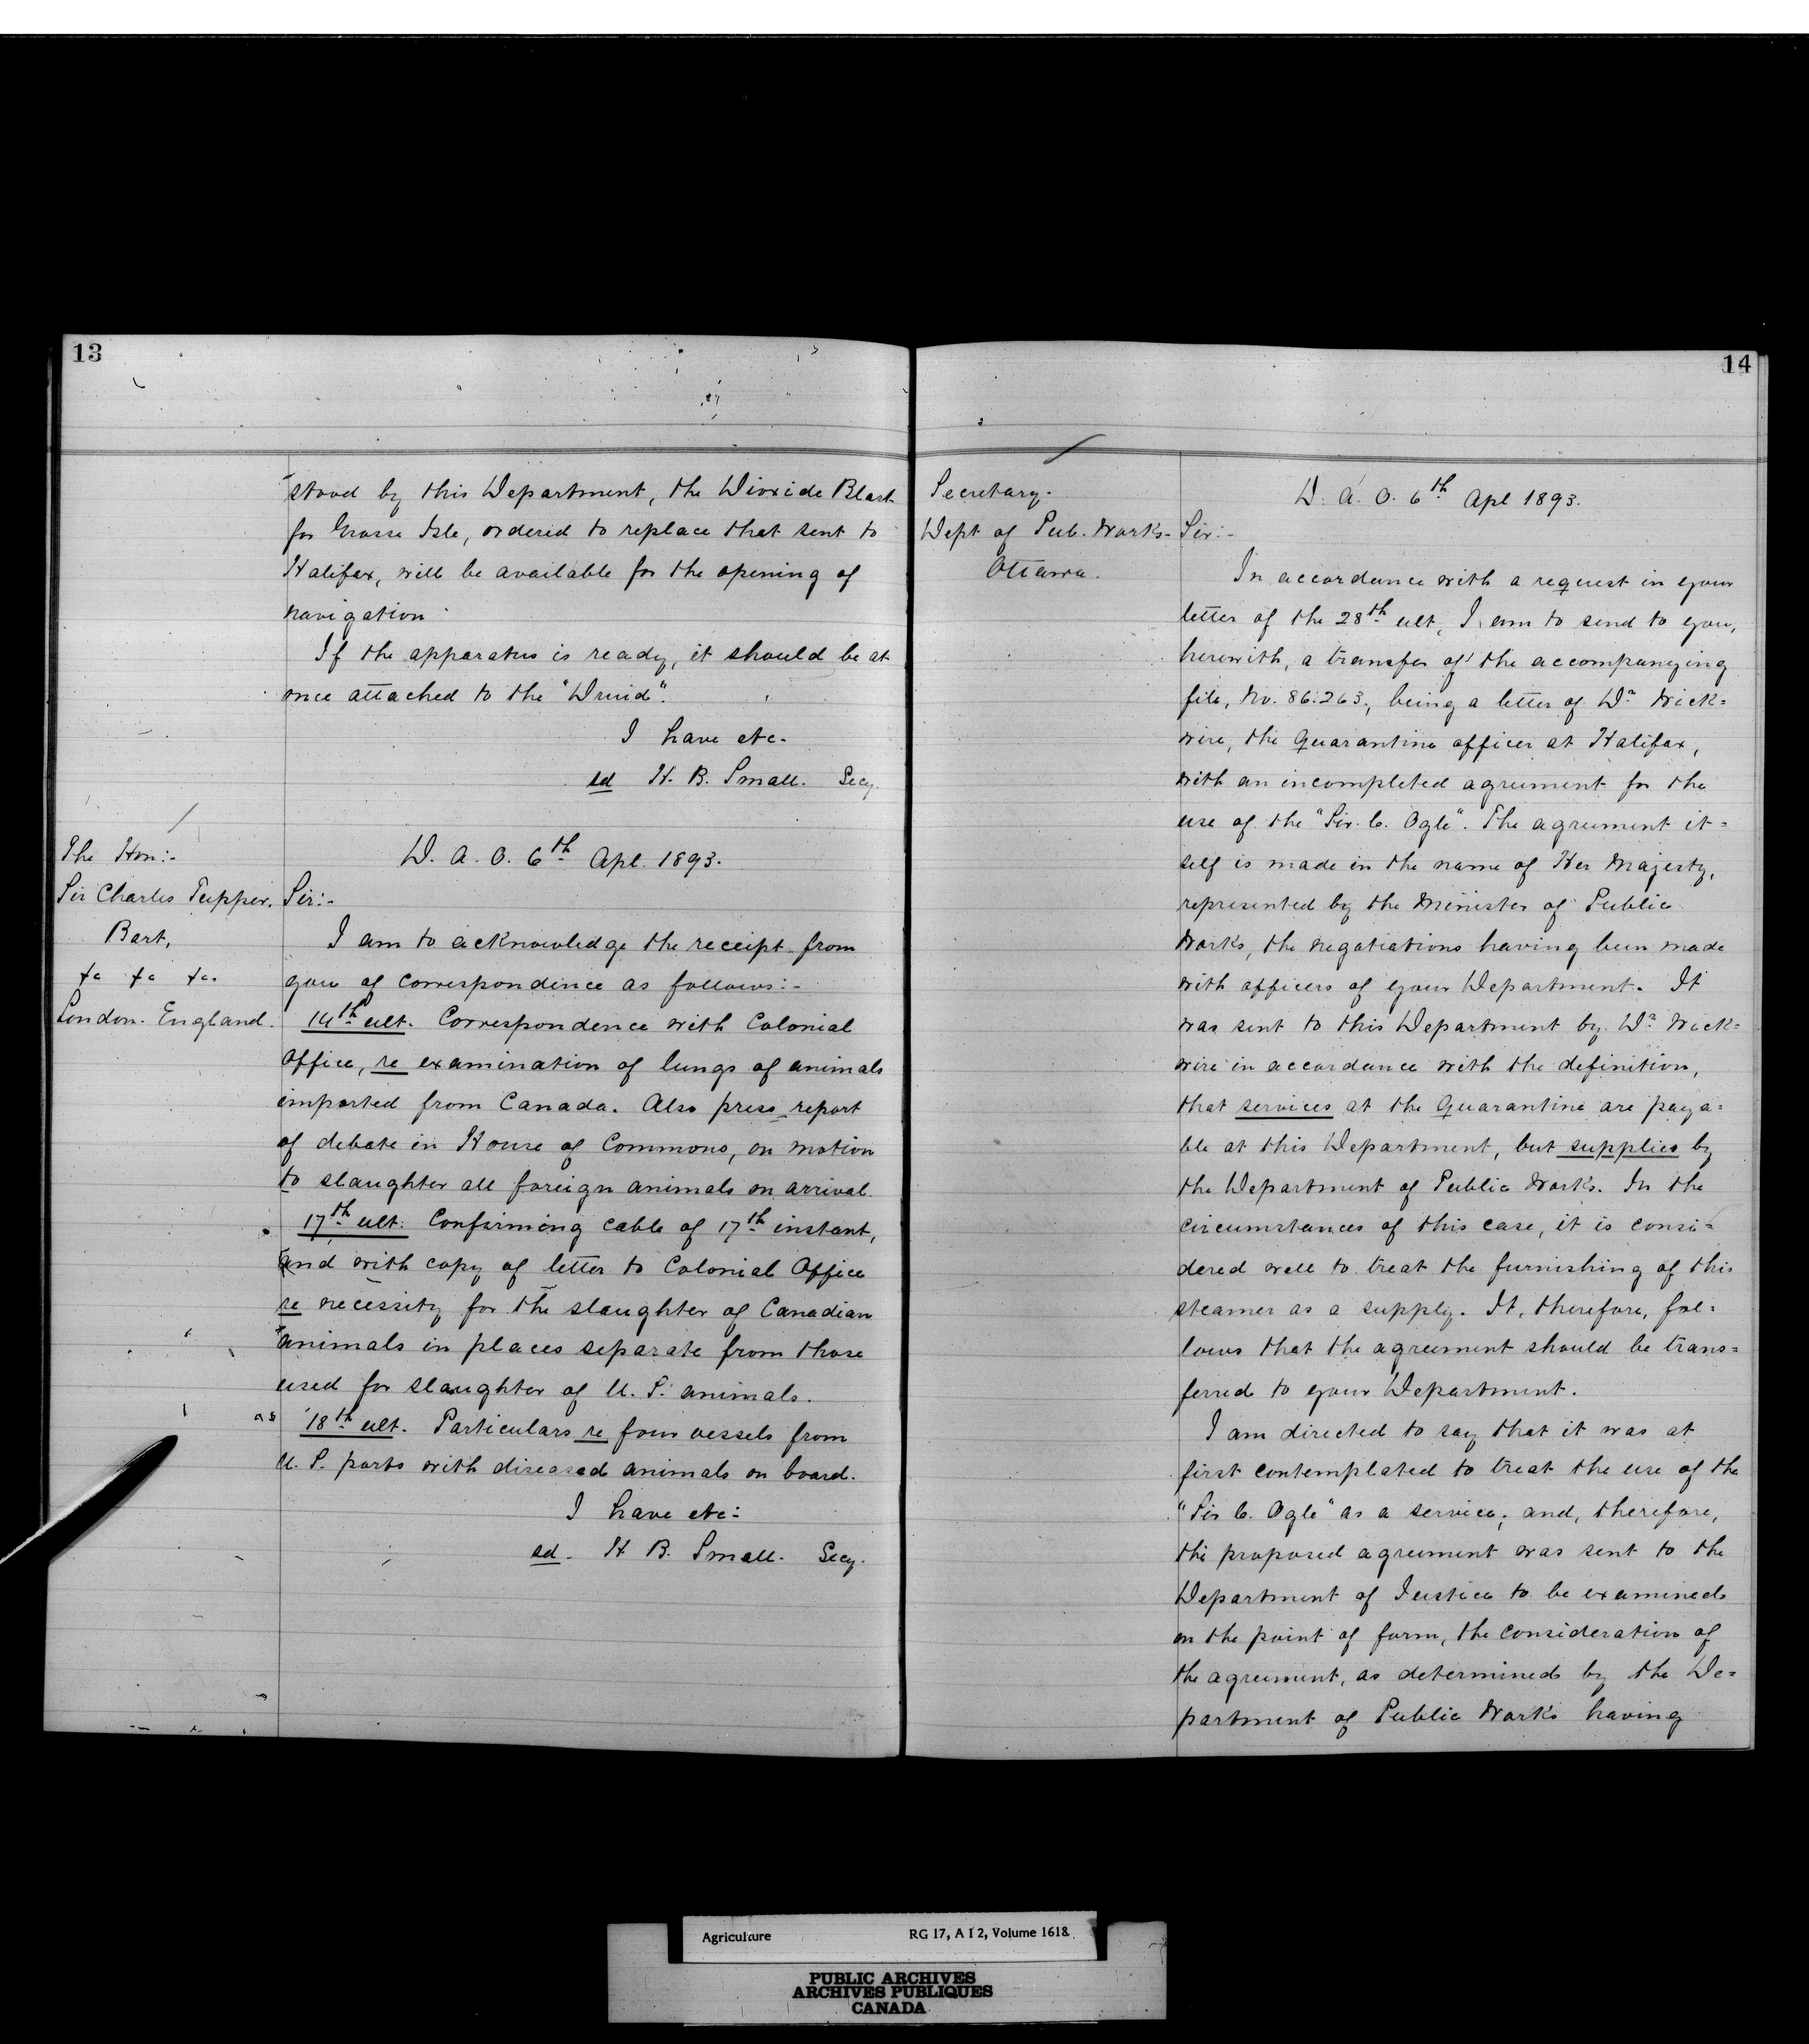 13
stood by this Department, the Dioxide Blast
for Grosse Isle, ordered to replace that sent to
Halifax, will be available for the opening of
navigation.
If the apparatus is ready, it should be at
once attached to the "Druid".
I have etc.
sd H. B. Small. Secy.
The Hon:-
Sir Charles Tupper.
Bart,
&c &c &c.
London. England.
D. A. O. 6th Apl. 1893.
Sir:-
I am to acknowledge the receipt from
you of correspondence as follows:-
14th ult. Correspondence with Colonial
Office, re examination of lungs of animals
imported from Canada. Also press report
of debate in House of Commons, on motion
to slaughter all foreign animals on arrival.
17th ult: Confirming cable of 17th instant,
and with copy of letter to Colonial Office
re necessity for the slaughter of Canadian
animals in places separate from those
used for slaughter of U. S. animals.
18th ult. Particulars re four vessels from
U. S. ports with diseased animals on board.
I have etc:
sd. H B. Small. Secy.
14
Secretary.
Dept of Pub. Works.
Ottawa.
D. A. O. 6th Apl 1893.
Sir:-
In accordance with a request in your
letter of the 28th ult, I am to send to you,
herewith, a transfer of the accompanying
file, No. 86.263., being a letter of Dr Wick=
wire, the Quarantine officer at Halifax,
with an incompleted agreement for the
use of the "Sir. C. Ogle". The agreement it=
self is made in the name of Her Majesty,
represented by the Minister of Public
Works, the negotiations having been made
with officers of your Department. It
was sent to this Department by Dr Wick=
wire in accordance with the definition,
that services at the Quarantine are paya=
ble at this Department, but supplies by
the Department of Public Works. In the
circumstances of this case, it is consi=
dered well to treat the furnishing of this
steamer as a supply. It, therefore, fol=
lows that the agreement should be trans=
ferred to your Department.
I am directed to say that it was at
first contemplated to treat the use of the
"Sir C. Ogle" as a service; and, therefore,
the proposed agreement was sent to the
Department of Justice to be examined
on the point of form, the consideration of
the agreement, as determined by the De=
partment of Public Works having
Agriculture RG 17, A I 2, Volume 1618
PUBLIC ARCHIVES
ARCHIVES PUBLIQUES
CANADA